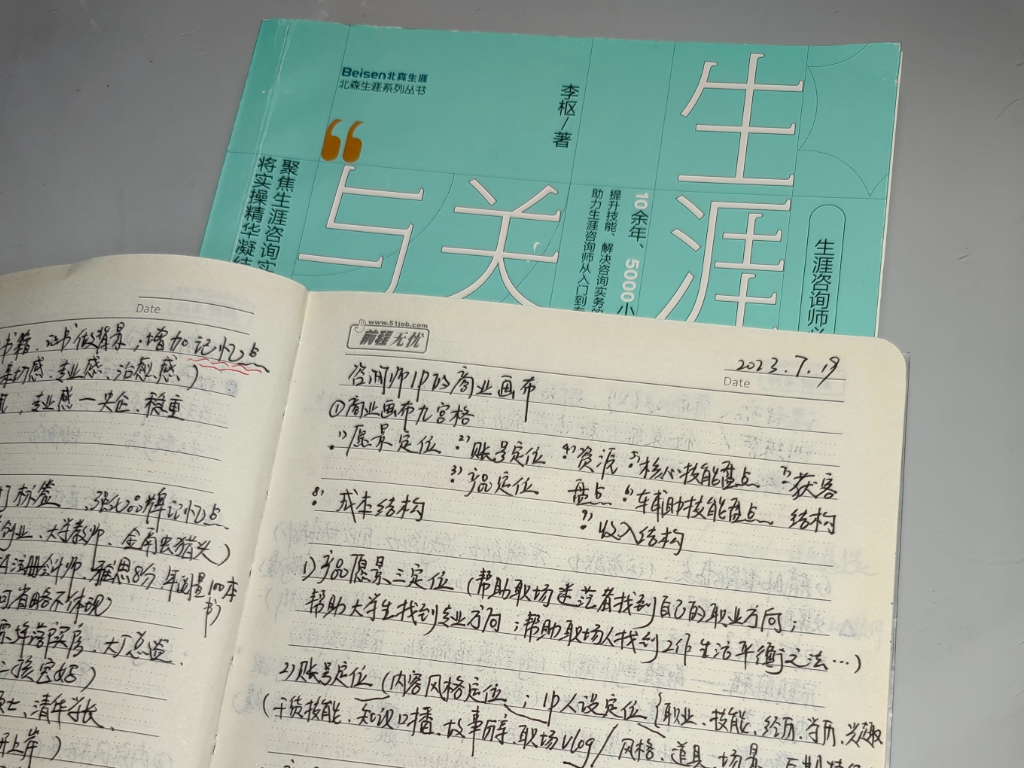 Beisen北森生涯
北森生涯系列丛书
李枢/著
生涯
与关
聚焦生涯咨询实
将实操精华凝结
10余年、5000小
提升技能、解决咨询实务
助力生涯咨询师从入门到
生涯咨询师
Date
书籍、证书做背景；增加记忆点
亲切感、专业感、治愈感）
专业感—央企、稳重
标签、强化品牌记忆点
创业、大学教师、金角虫猎头）
注册会计师、雅思8分、年阅星100本
书）
可省略不体现）
大厂总监、
二孩宝妈）
清华学长、
上岸）
www.51job.com
前程无忧
2023.7.19
Date
咨询师IP的商业画布
①商业画布九宫格
1)愿景定位 2)账号定位 4)资源 5)核心技能盘点 获客
3)产品定位 盘点 6)辅助技能盘点 结构
8)成本结构 收入结构
1)产品愿景三定位（帮助职场迷茫者找到自己的职业方向；
帮助大学生找到专业方向；帮助职场人找到工作生活平衡之法…）
2)账号定位（内容风格定位；IP人设定位{职业、技能、经历、学历、兴趣
（干货技能、知识口播、故事分享、职场Vlog/风格、道具、场景、